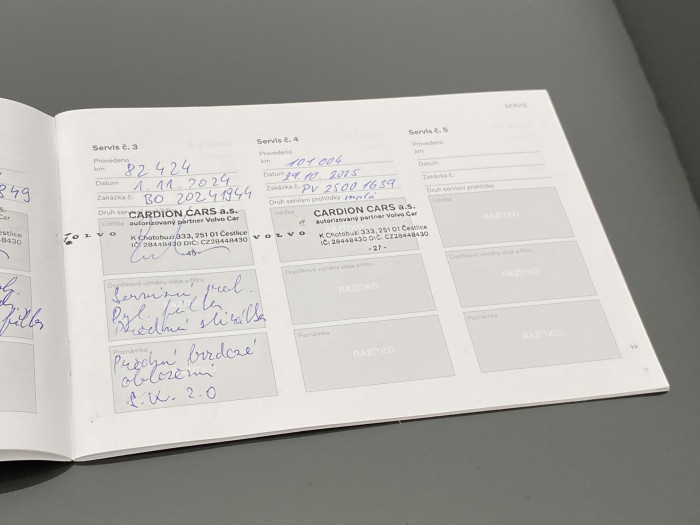 849
SERVIS
Servis č. 3
Provedeno
km 82 424
Datum 1. 11. 2024
Zakázka č. BO 20241944
Druh servisní
Údržba
CARDION CARS a.s.
autorizovaný partner Volvo Car
VOLVO
K Chotobuzi 333, 251 01 Čestlice
IČ: 28448430 DIČ: CZ28448430
Doplňkové výměny oleje a filtru
Servisní prel.
Pyl. filtr
Poznámka
Přední brzdové
obložení
S.K. 2.0
Servis č. 4
Provedeno
km 101 004
Datum 29. 10. 2025
Zakázka č. PV 2500 1639
Druh servisní prohlídky malá
Údržba
CARDION CARS a.s.
autorizovaný partner Volvo Car
VOLVO
K Chotobuzi 333, 251 01 Čestlice
IČ: 28448430 DIČ: CZ28448430
- 27 -
Doplňkové výměny oleje a filtru
RAZÍTKO
Poznámka
RAZÍTKO
Servis č. 5
Provedeno
km
Datum
Zakázka č.
Druh servisní prohlídky
Údržba
RAZÍTKO
Doplňkové výměny oleje a filtru
RAZÍTKO
Poznámka
RAZÍTKO
7